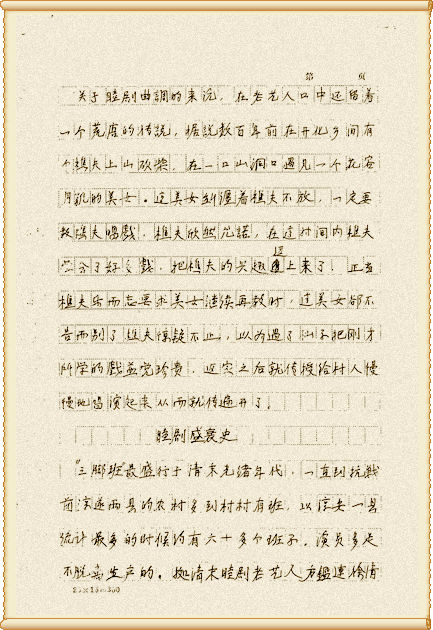 第 页
关于睦剧曲調的来说，在老艺人口中还留着
一个荒唐的传説，据説数百年前在开化乡间有
个樵夫上山砍柴，在一口山洞口遇见一个花容
月貌的美女。这美女纠缠着樵夫不放，一定要
教樵夫唱戲，樵夫欣然允諾，在这时间内樵夫
学会了好多戲，把樵夫的兴趣逗上来了！正当
樵夫乐而忘要求美女继续再教时，这美女却不
告而别了樵夫惊疑不止，以为遇了仙子把刚才
所学的戲益觉珍贵，返家之后就传授给村人慢
慢地唱演起来从而就传遍开了。
睦剧盛衰史
“三脚班”最盛行于清末光緒年代，一直到抗戰
前淳遂两县的农村多到村村有班，以淳安一县
统计最多的时候约有六十多个班子，演员多是
不脱离生产的。据清末睦剧老艺人方鑑連徐清
25×15=350